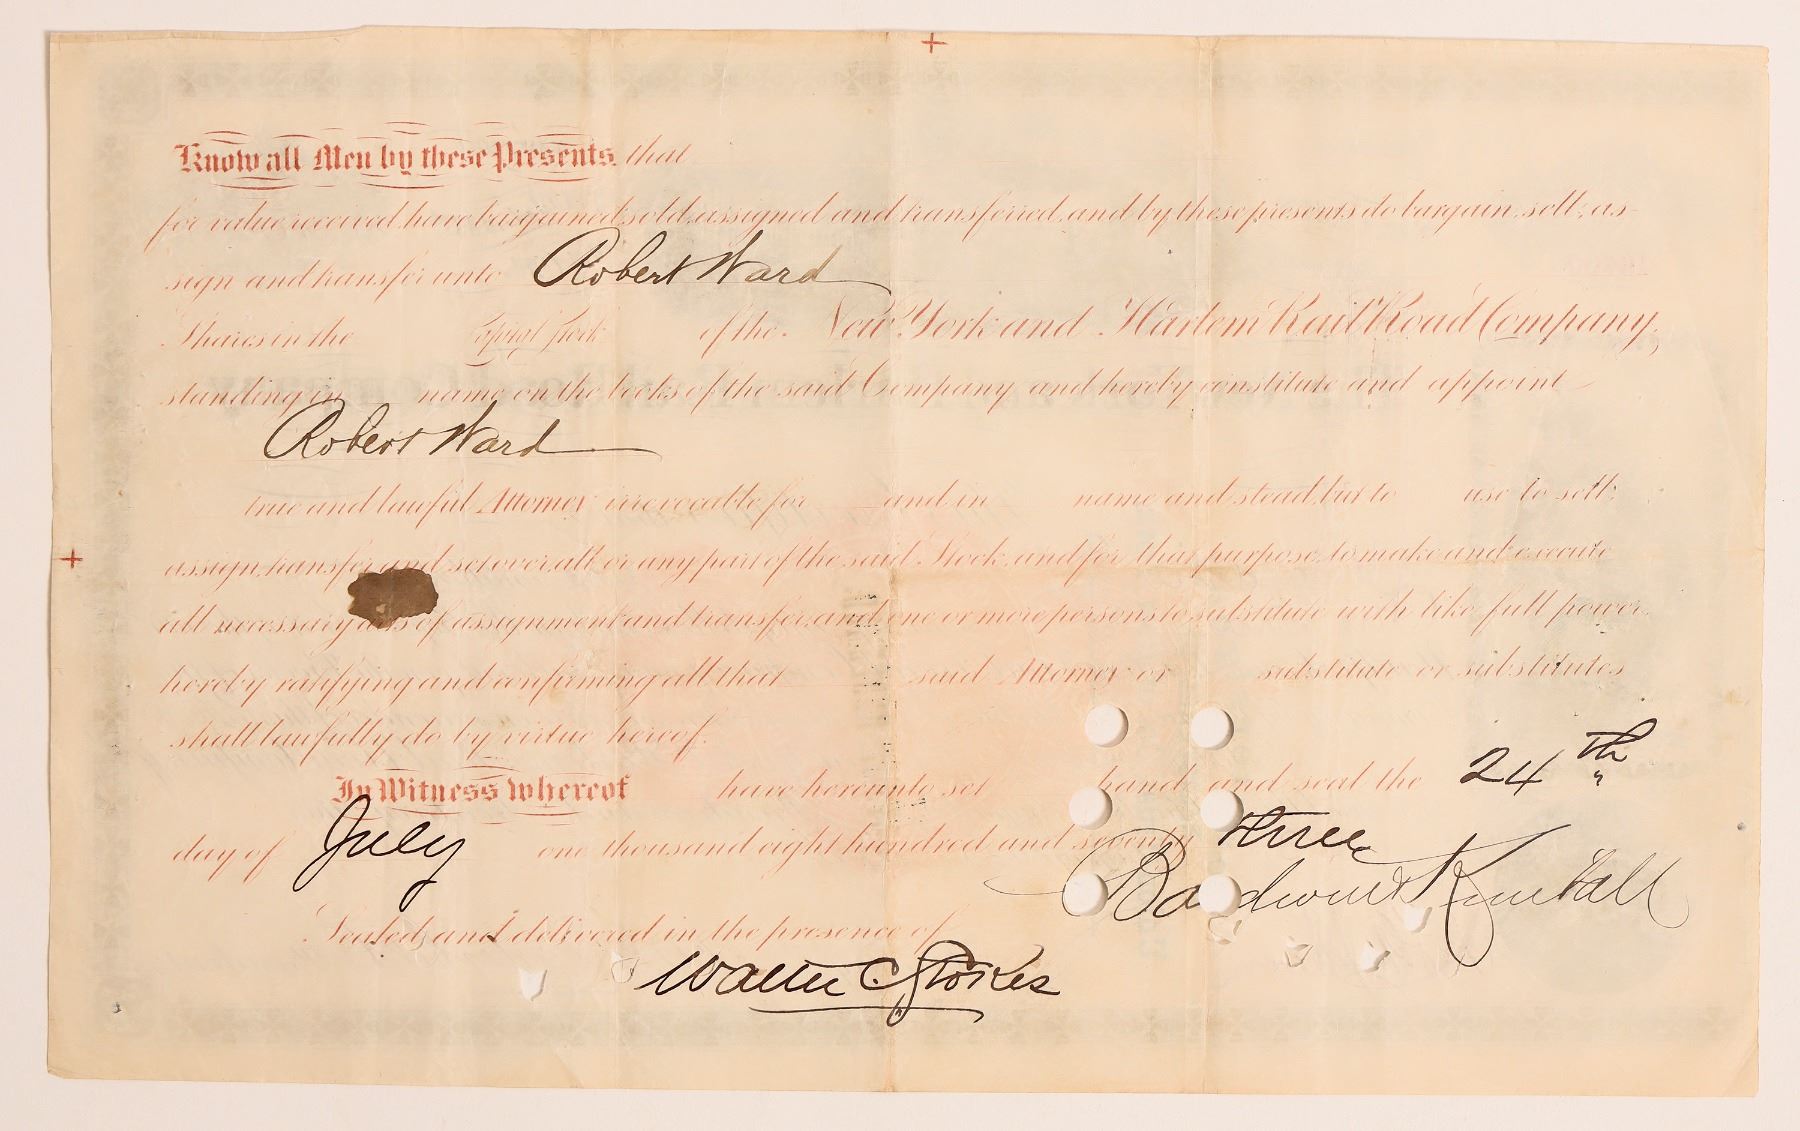 Know all Men by these Presents, that
for value received, have bargained, sold, assigned and transferred, and by these presents do bargain, sell, as-
sign and transfer unto Robert Ward
Shares in the Capital Stock of the New York and Harlem Rail Road Company,
standing in name on the books of the said Company and hereby constitute and appoint
Robert Ward
true and lawful Attorney irrevocable for and in name and stead, but to use to sell,
assign, transfer and set over, all or any part of the said Stock, and for that purpose, to make and execute
all necessary acts of assignment and transfer, and one or more persons to substitute with like full power.
hereby ratifying and confirming all that said Attorney or substitute or substitutes
shall lawfully do by virtue hereof.
In Witness whereof have hereunto set hand and seal the 24th
day of July one thousand eight hundred and seventy three
Baldwin & Kimball
Sealed and delivered in the presence of
Walter C. Stokes